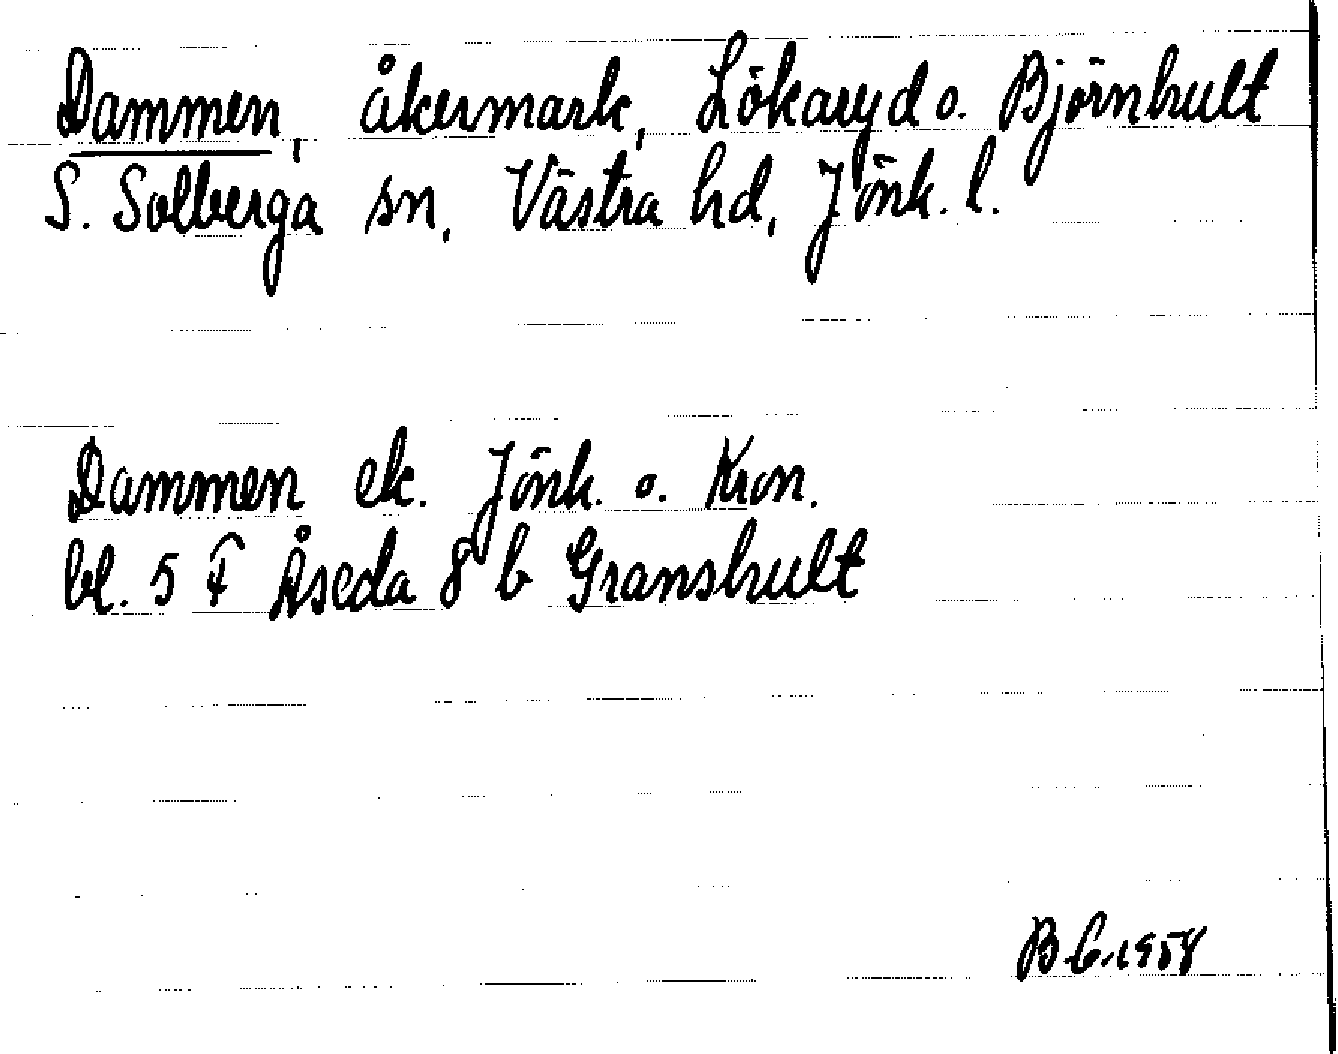 Dammen, åkermark, Lökaryd o. Björnhult
S. Solberga sn, Västra hd, Jönk. l.
Dammen ek. Jönk. o. Kron.
bl. 5 F Åseda 8 b Granshult
B.C. 1958